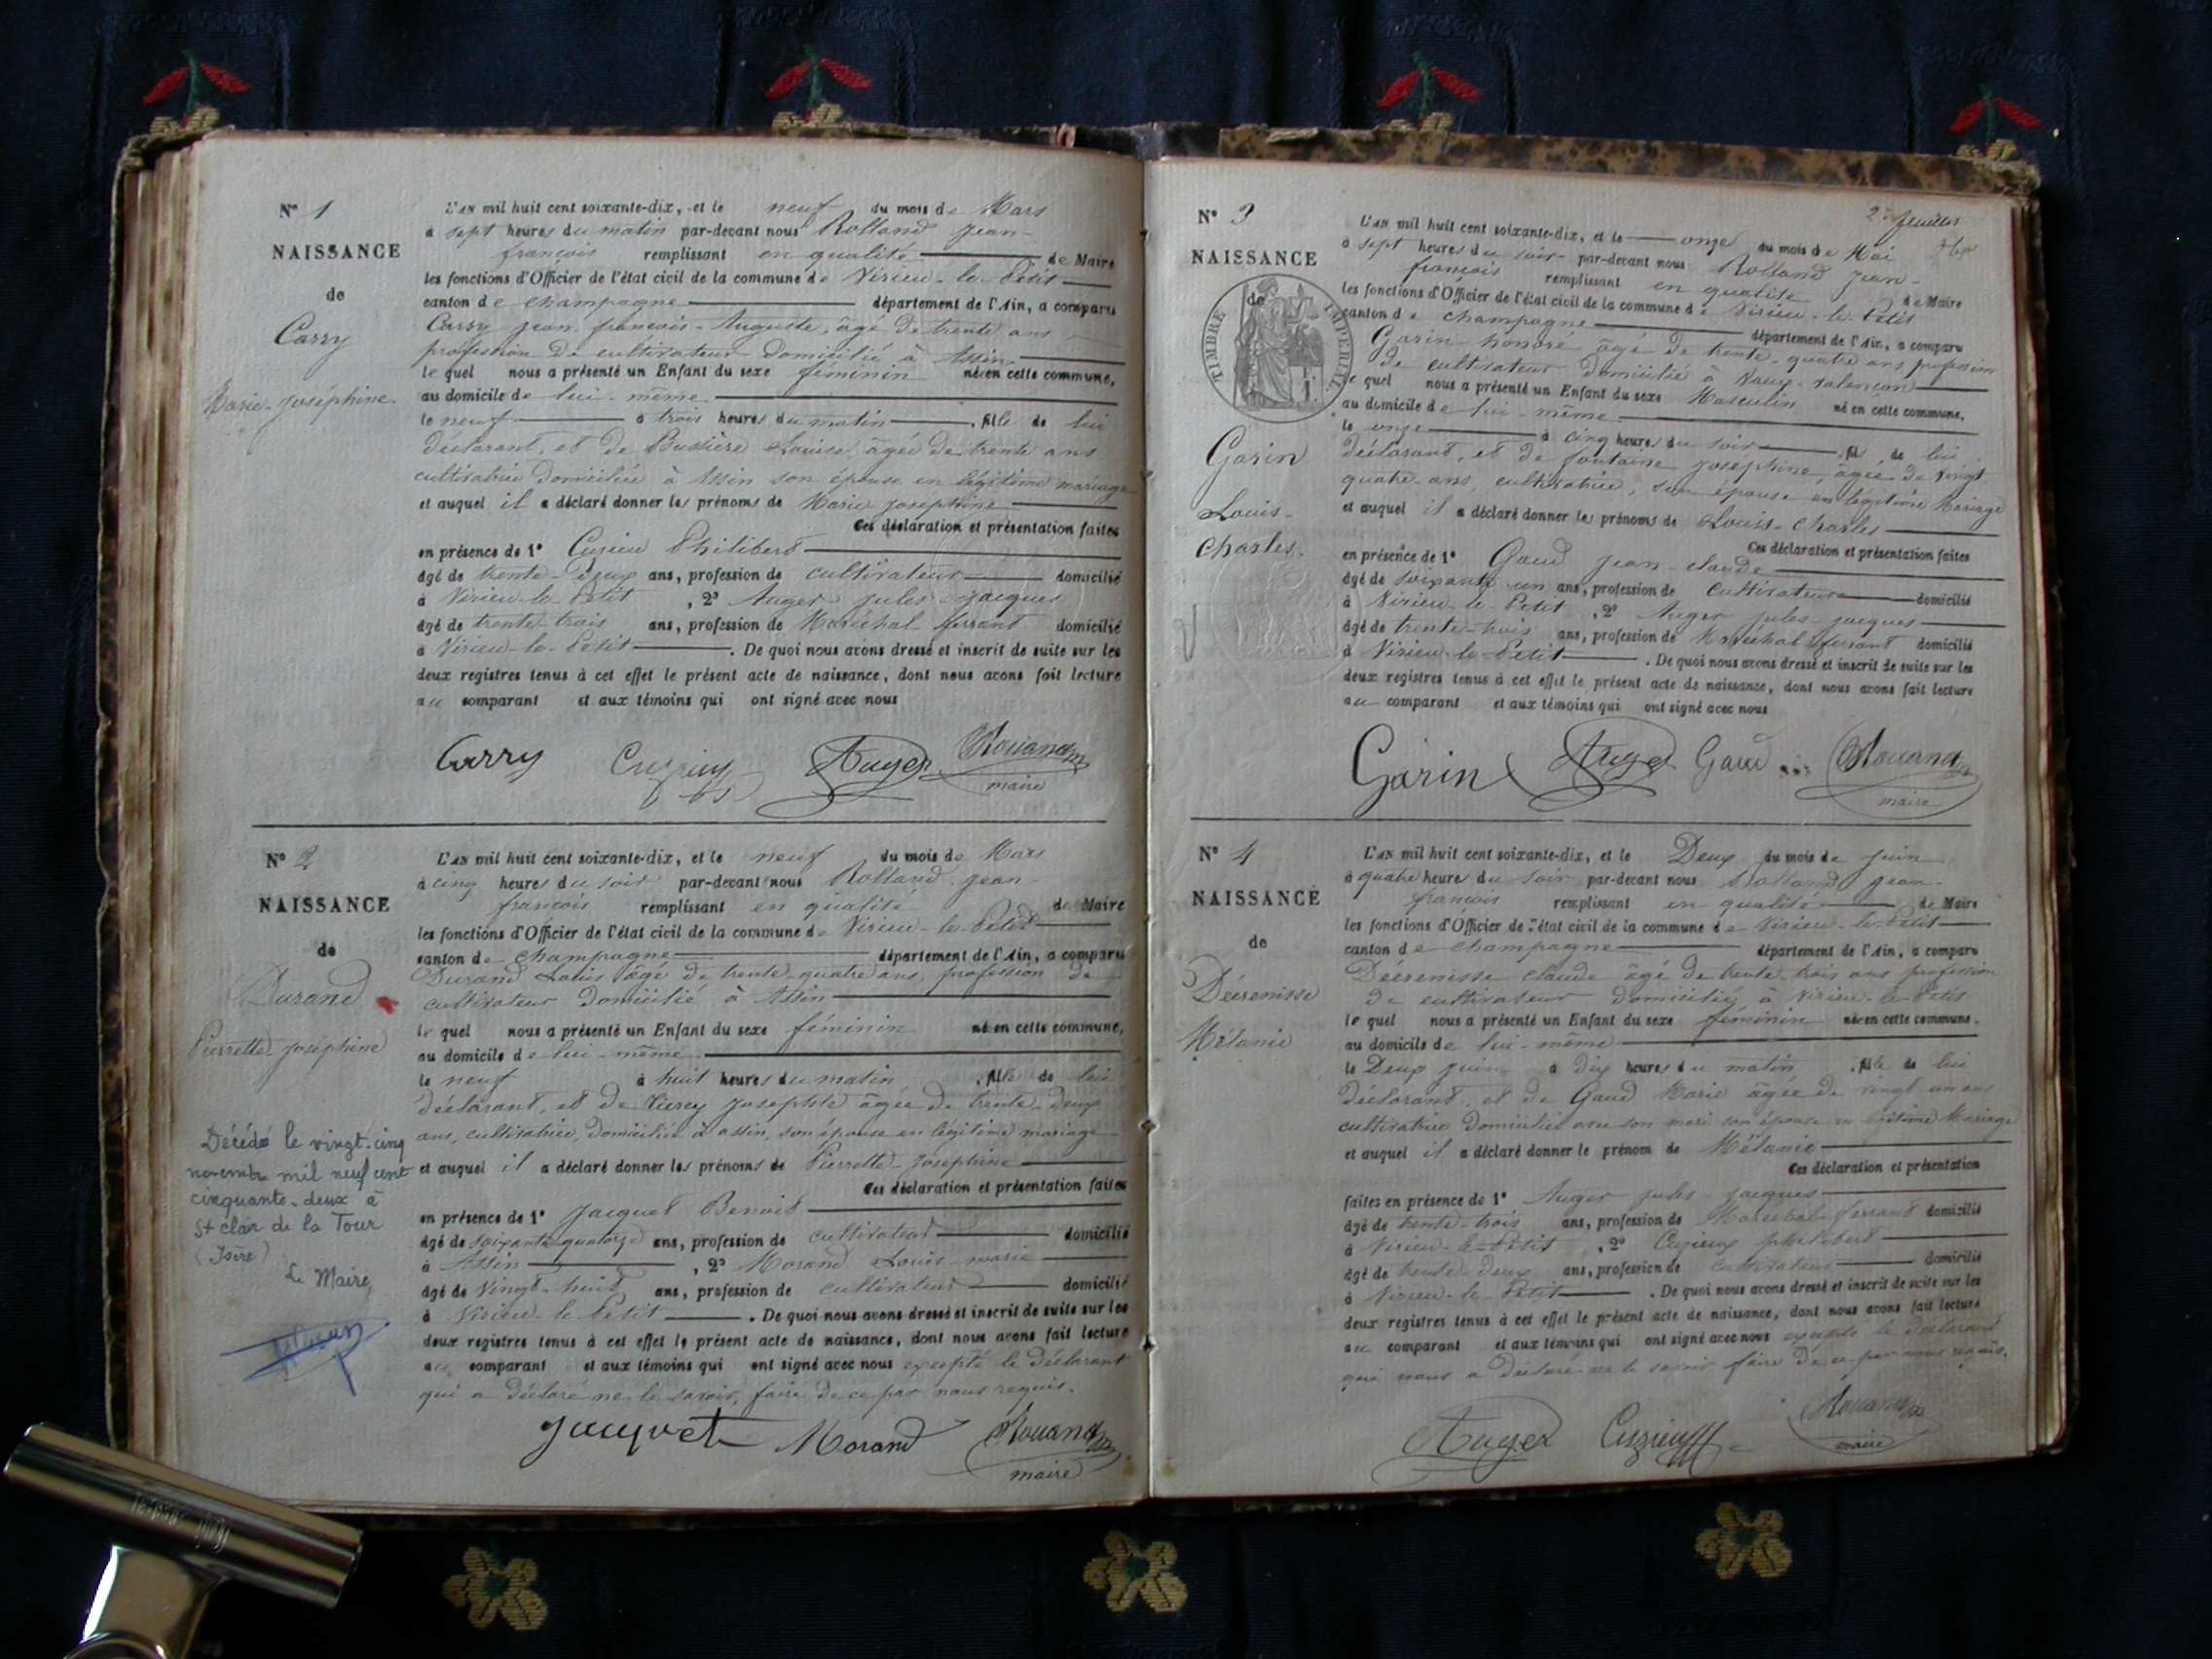 N° 1
NAISSANCE
de
Carry
Marie-Joséphine
L'AN mil huit cent soixante-dix, et le neuf du mois de Mars
à sept heures du matin par-devant nous Rolland Jean-
françois remplissant en qualité de Maire
les fonctions d'Officier de l'état civil de la commune de Virieu-le-Petit
canton de champagne département de l'Ain, a comparu
Carry Jean-françois-Auguste, âgé de trente ans
profession de cultivateur domicilié à Assin
le quel nous a présenté un Enfant du sexe féminin née en cette commune,
au domicile de lui-même
le neuf à trois heures du matin, fille de lui
déclarant, et de Bussière Louise, âgée de trente ans
cultivatrice domiciliée à Assin son épouse en légitime mariage
et auquel il a déclaré donner les prénoms de Marie Joséphine
Ces déclaration et présentation faites
en présence de 1° Cuzieu Philibert
âgé de trente-deux ans, profession de cultivateur domicilié
à Virieu-le-Petit, 2° Auger Jules-Jacques
âgé de trente-trois ans, profession de Maréchal-ferrant domicilié
à Virieu-le-Petit. De quoi nous avons dressé et inscrit de suite sur les
deux registres tenus à cet effet le présent acte de naissance, dont nous avons fait lecture
au comparant et aux témoins qui ont signé avec nous
Carry Auger
maire
N° 2
NAISSANCE
de
Durand
Pierrette-Joséphine
L'AN mil huit cent soixante-dix, et le neuf du mois de Mars
à cinq heures du soir par-devant nous Rolland Jean-
françois remplissant en qualité de Maire
les fonctions d'Officier de l'état civil de la commune de Virieu-le-Petit
canton de champagne département de l'Ain, a comparu
Durand Louis âgé de trente-quatre ans, profession de
cultivateur domicilié à Assin
le quel nous a présenté un Enfant du sexe féminin née en cette commune,
au domicile de lui-même
le neuf à huit heures du matin, fille de lui
déclarant, et de Josephte âgée de trente-deux
ans, cultivatrice, domiciliée à assin, son épouse en légitime mariage
et auquel il a déclaré donner les prénoms de Pierrette-Joséphine
Ces déclaration et présentation faites
en présence de 1° Jacquet Benoit
âgé de soixante-quatorze ans, profession de cultivateur domicilié
à Assin, 2° Morand Louis-marie
âgé de Vingt-huit ans, profession de cultivateur domicilié
à Virieu-le-Petit. De quoi nous avons dressé et inscrit de suite sur les
deux registres tenus à cet effet le présent acte de naissance, dont nous avons fait lecture
au comparant et aux témoins qui ont signé avec nous excepté le déclarant
qui a déclaré ne le savoir faire de ce par nous requis.
Jacquet Morand
maire
Décédé le vingt-cinq
novembre mil neuf cent
cinquante-deux à
St clair de la Tour
(Isère)
Le Maire,
N° 3
NAISSANCE
de
TIMBRE IMPERIAL
Garin
Louis-
Charles.
2e feuillet
L'AN mil huit cent soixante-dix, et le onze du mois de Mai
à sept heures du soir par-devant nous Rolland Jean-
françois remplissant en qualité de Maire
les fonctions d'Officier de l'état civil de la commune de Virieu-le-Petit
canton de champagne département de l'Ain, a comparu
Garin honoré âgé de trente-quatre ans profession
de cultivateur domicilié à
le quel nous a présenté un Enfant du sexe Masculin né en cette commune,
au domicile de lui-même
le onze à cinq heures du soir, fils de lui
déclarant, et de fontaine Joséphine, âgée de Vingt
quatre-ans, cultivatrice, son épouse en légitime Mariage
et auquel il a déclaré donner les prénoms de Louis-Charles
Ces déclaration et présentation faites
en présence de 1° Gaud Jean-claude
âgé de soixante un ans, profession de Cultivateur domicilié
à Virieu-le-Petit, 2° Auger Jules-Jacques
âgé de trente-trois ans, profession de Maréchal ferrant domicilié
à Virieu-le-Petit. De quoi nous avons dressé et inscrit de suite sur les
deux registres tenus à cet effet le présent acte de naissance, dont nous avons fait lecture
au comparant et aux témoins qui ont signé avec nous
Garin Auger Gaud
maire
N° 4
NAISSANCE
de
Décrenisse
Mélanie
L'AN mil huit cent soixante-dix, et le Deux du mois de Juin
à quatre heures du soir par-devant nous Rolland Jean-
françois remplissant en qualité de Maire
les fonctions d'Officier de l'état civil de la commune de Virieu-le-Petit
canton de champagne département de l'Ain, a comparu
Décrenisse claude âgé de trente-trois ans profession
de cultivateur domicilié à Virieu-le-Petit
le quel nous a présenté un Enfant du sexe féminin née en cette commune,
au domicile de lui-même
le Deux juin à dix heures du matin, fille de lui
déclarant, et de Gaud Marie âgée de vingt-un ans
cultivatrice domiciliée avec son mari son épouse en légitime Mariage
et auquel il a déclaré donner le prénom de Mélanie
Ces déclaration et présentation
faites en présence de 1° Auger Jules-Jacques
âgé de trente-trois ans, profession de Maréchal-ferrant domicilié
à Virieu-le-Petit, 2° Cuzieux philibert
âgé de trente-deux ans, profession de cultivateur domicilié
à Virieu-le-Petit. De quoi nous avons dressé et inscrit de suite sur les
deux registres tenus à cet effet le présent acte de naissance, dont nous avons fait lecture
au comparant et aux témoins qui ont signé avec nous excepté le déclarant
qui nous a déclaré ne le savoir faire de ce par nous requis.
Auger
maire